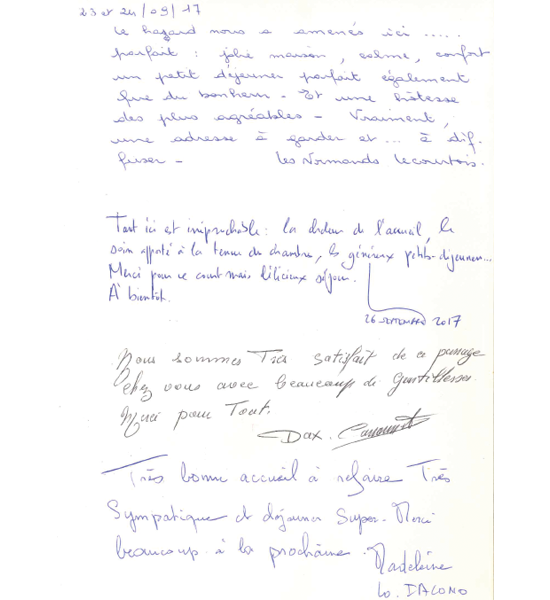 23 et 24/09/17
Le hazard nous a amenés ici .....
parfait : jolie maison, calme, confort
un petit déjeuner parfait également
que du bonheur - Et une hôtesse
des plus agréables - Vraiment,
une adresse à garder et ... à dif.
fuser - Les Normands Lecourtois.
Tout ici est irréprochable : la chaleur de l'accueil, le
soin apporté à la tenue des chambres, les généreux petits-déjeuners...
Merci pour ce court mais délicieux séjour.
À bientôt.
26 septembre 2017
Nous sommes Très satisfait de ce passage
Chez vous avec beaucoup de Gentillesses.
Merci pour Tout.
Dax.
Très bonne accueil à refaire Très
Sympatique et déjeuner Super. Merci
beaucoup à la prochaine. Madeleine
Lo. DACONO